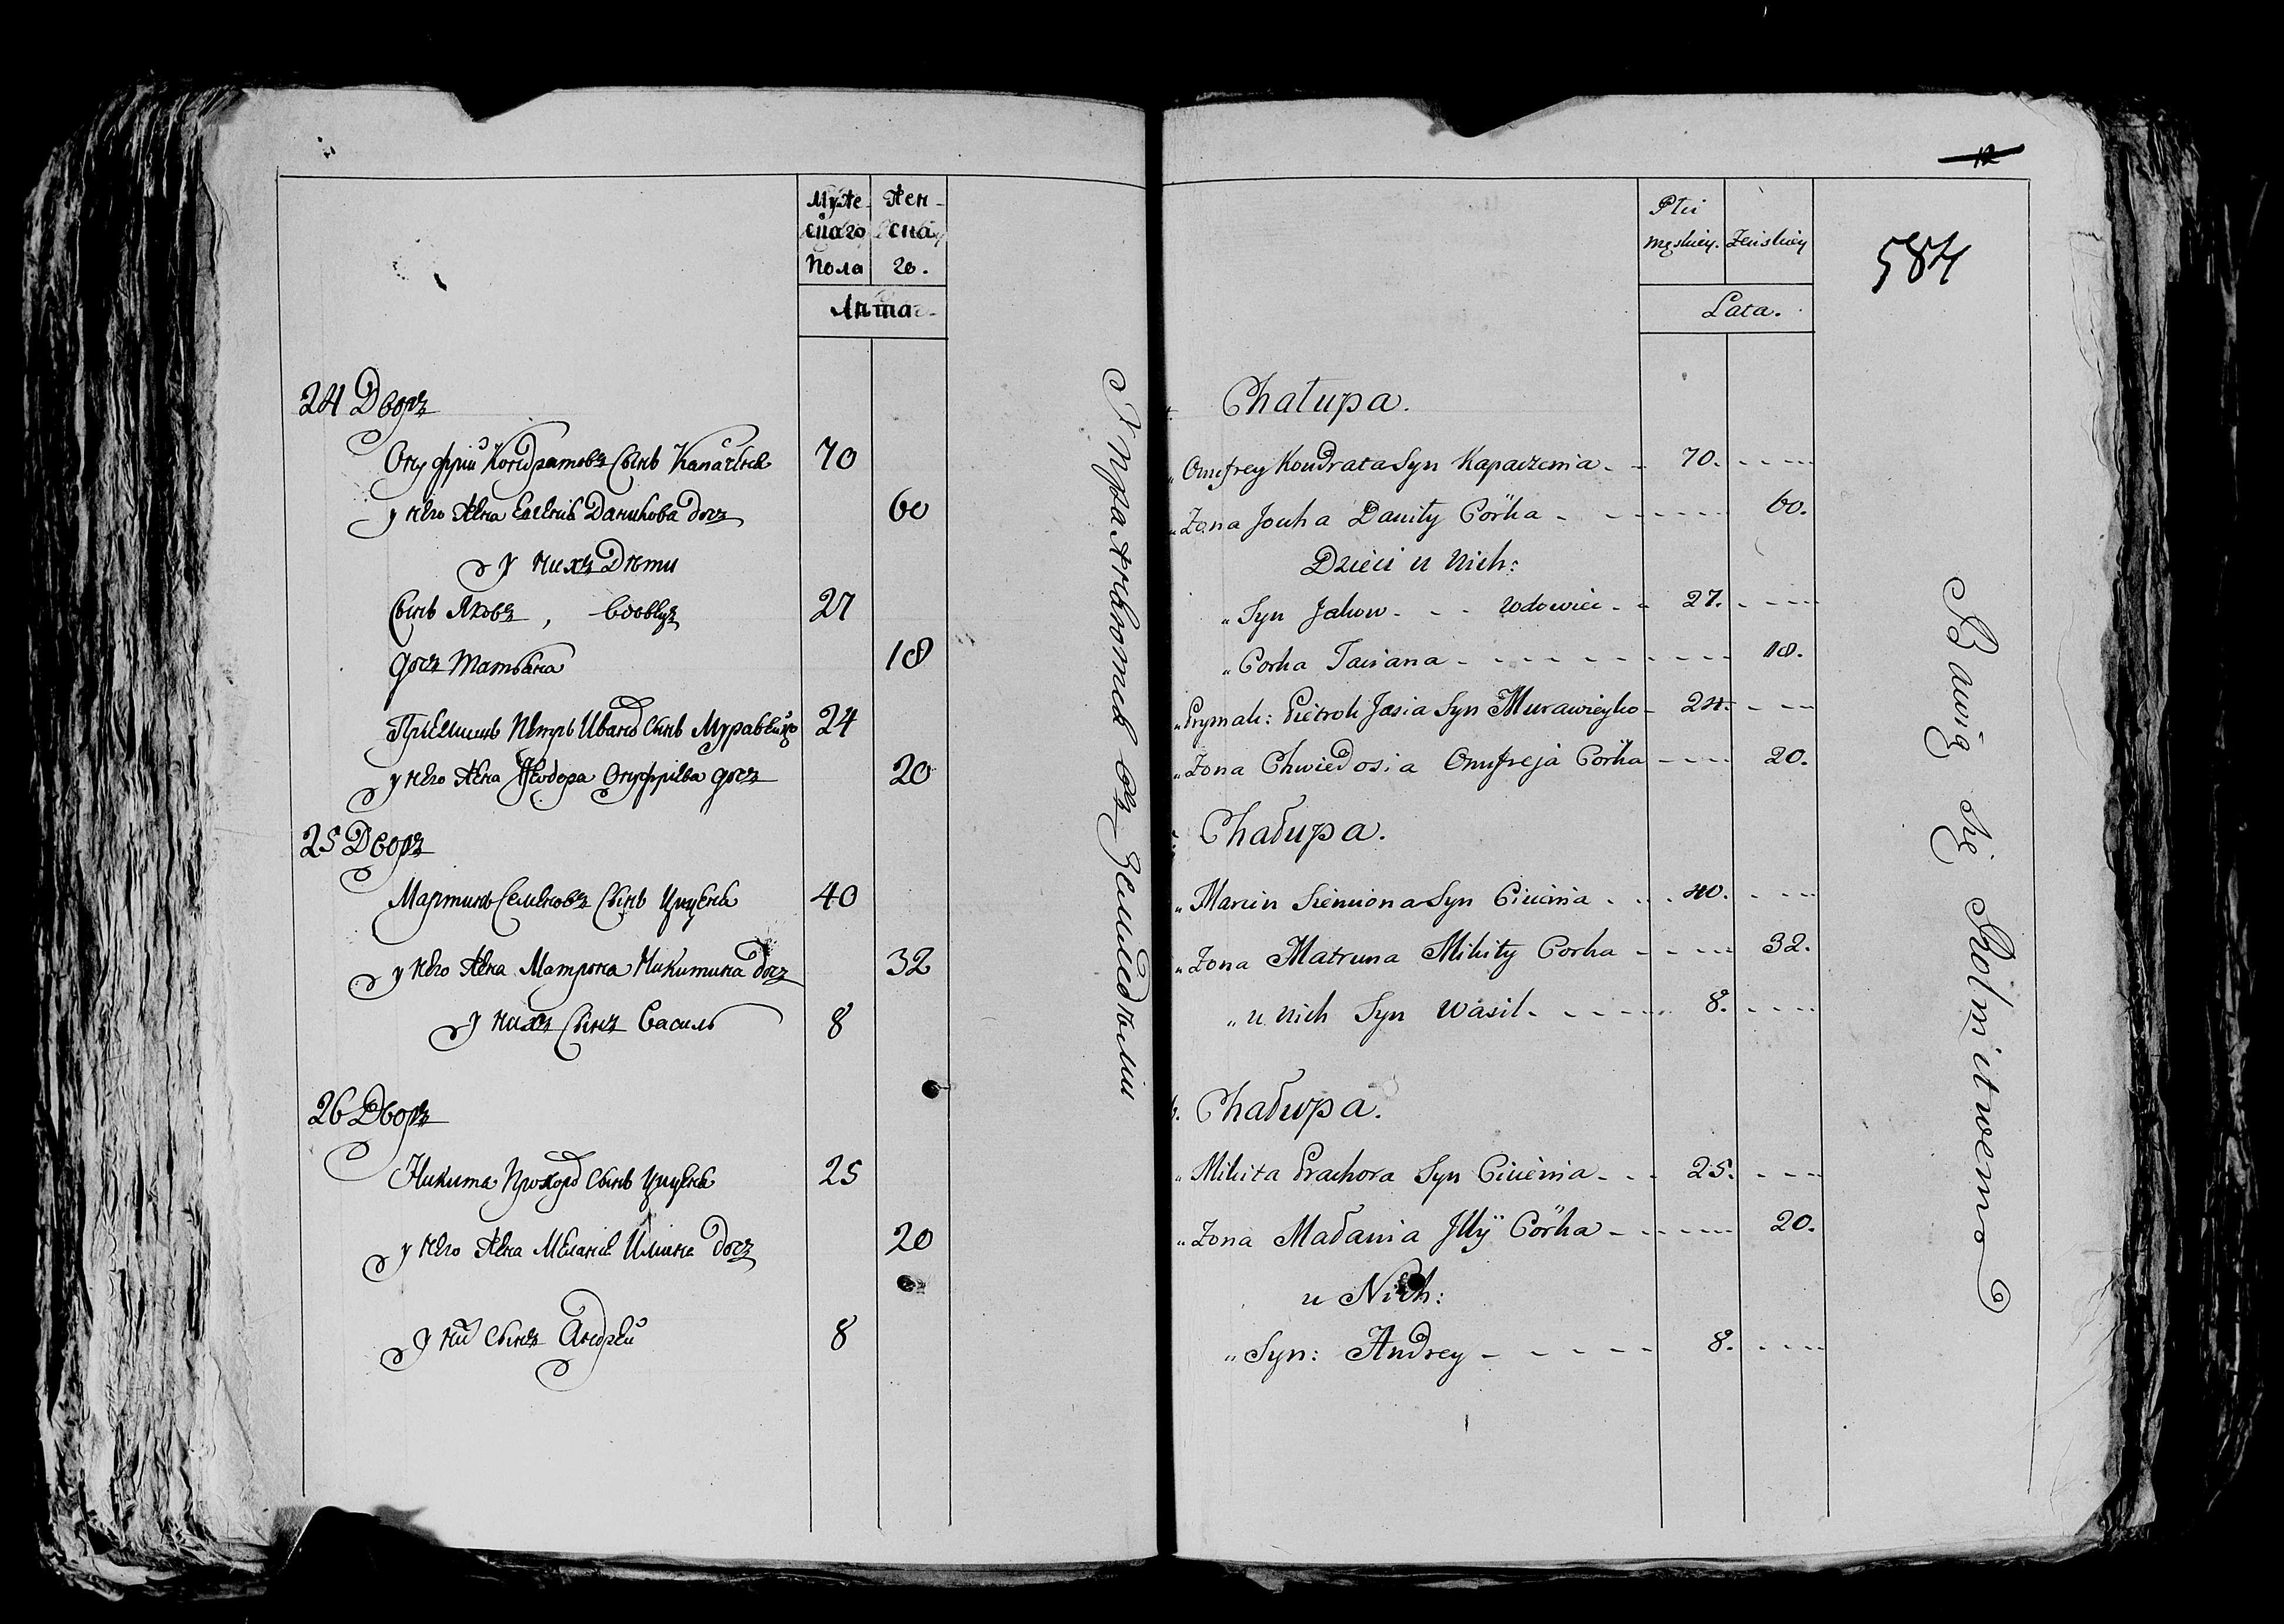 Муже-
скаго
Пола
Жен-
ска
го.
Лѣта.
24 Дворъ
Онуфрій Кондратовъ Сынъ Капачѣня
70
у него Жена Евгенія Данилова дочъ
60
у нихъ Дѣти
Сынъ Яковъ, вдовецъ
27
дочъ Татьяна
18
Пріемышъ Петръ Иванов Сынъ Муравейко
24
у него Жена Феодора Онуфріева дочъ
20
25 Дворъ
Мартинъ Семеновъ Сынъ Цицѣня
40
у него Жена Матрона Никитина дочъ
32
у нихъ Сынъ Василь
8
26 Дворъ
Никита Прохоров Сынъ Цицѣня
25
у него Жена Меланія Ильина дочъ
20
у них сынъ Андрей
8
Упражняются въ Земледѣліи
12
584
Płci
męskiey.
Żeńskiey
Lata.
Chałupa.
„ Onufrey Kondrata Syn Kapaczenia
70.
„ Żona Jouha Daniły Córka
60.
Dzieci u Nich:
„ Syn Jakow wdowiec
27.
„ Corka Taciana
18.
„ Prymak: Piétrok Jasia Syn Murawieyko
24.
„ Żona Chwiedosia Onufreja Córka
20.
Chałupa.
„ Marcin Siemiona Syn Cicienia
40.
„ Żona Matruna Mikity Corka
32.
„ u nich Syn Wasil
8.
Chałupa.
„ Mikita Prachora Syn Cicienia
25.
„ Żona Małania Illÿ Córka
20.
u Nich:
„ Syn: Andrey
8.
Bawią się Rolnictwem